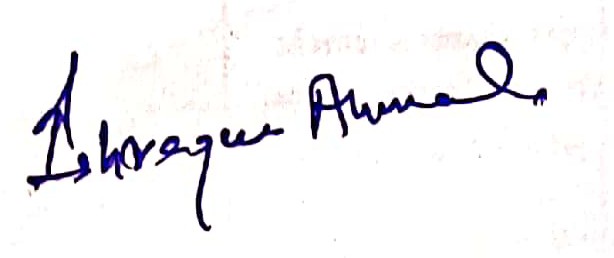 Ishreque Ahmad